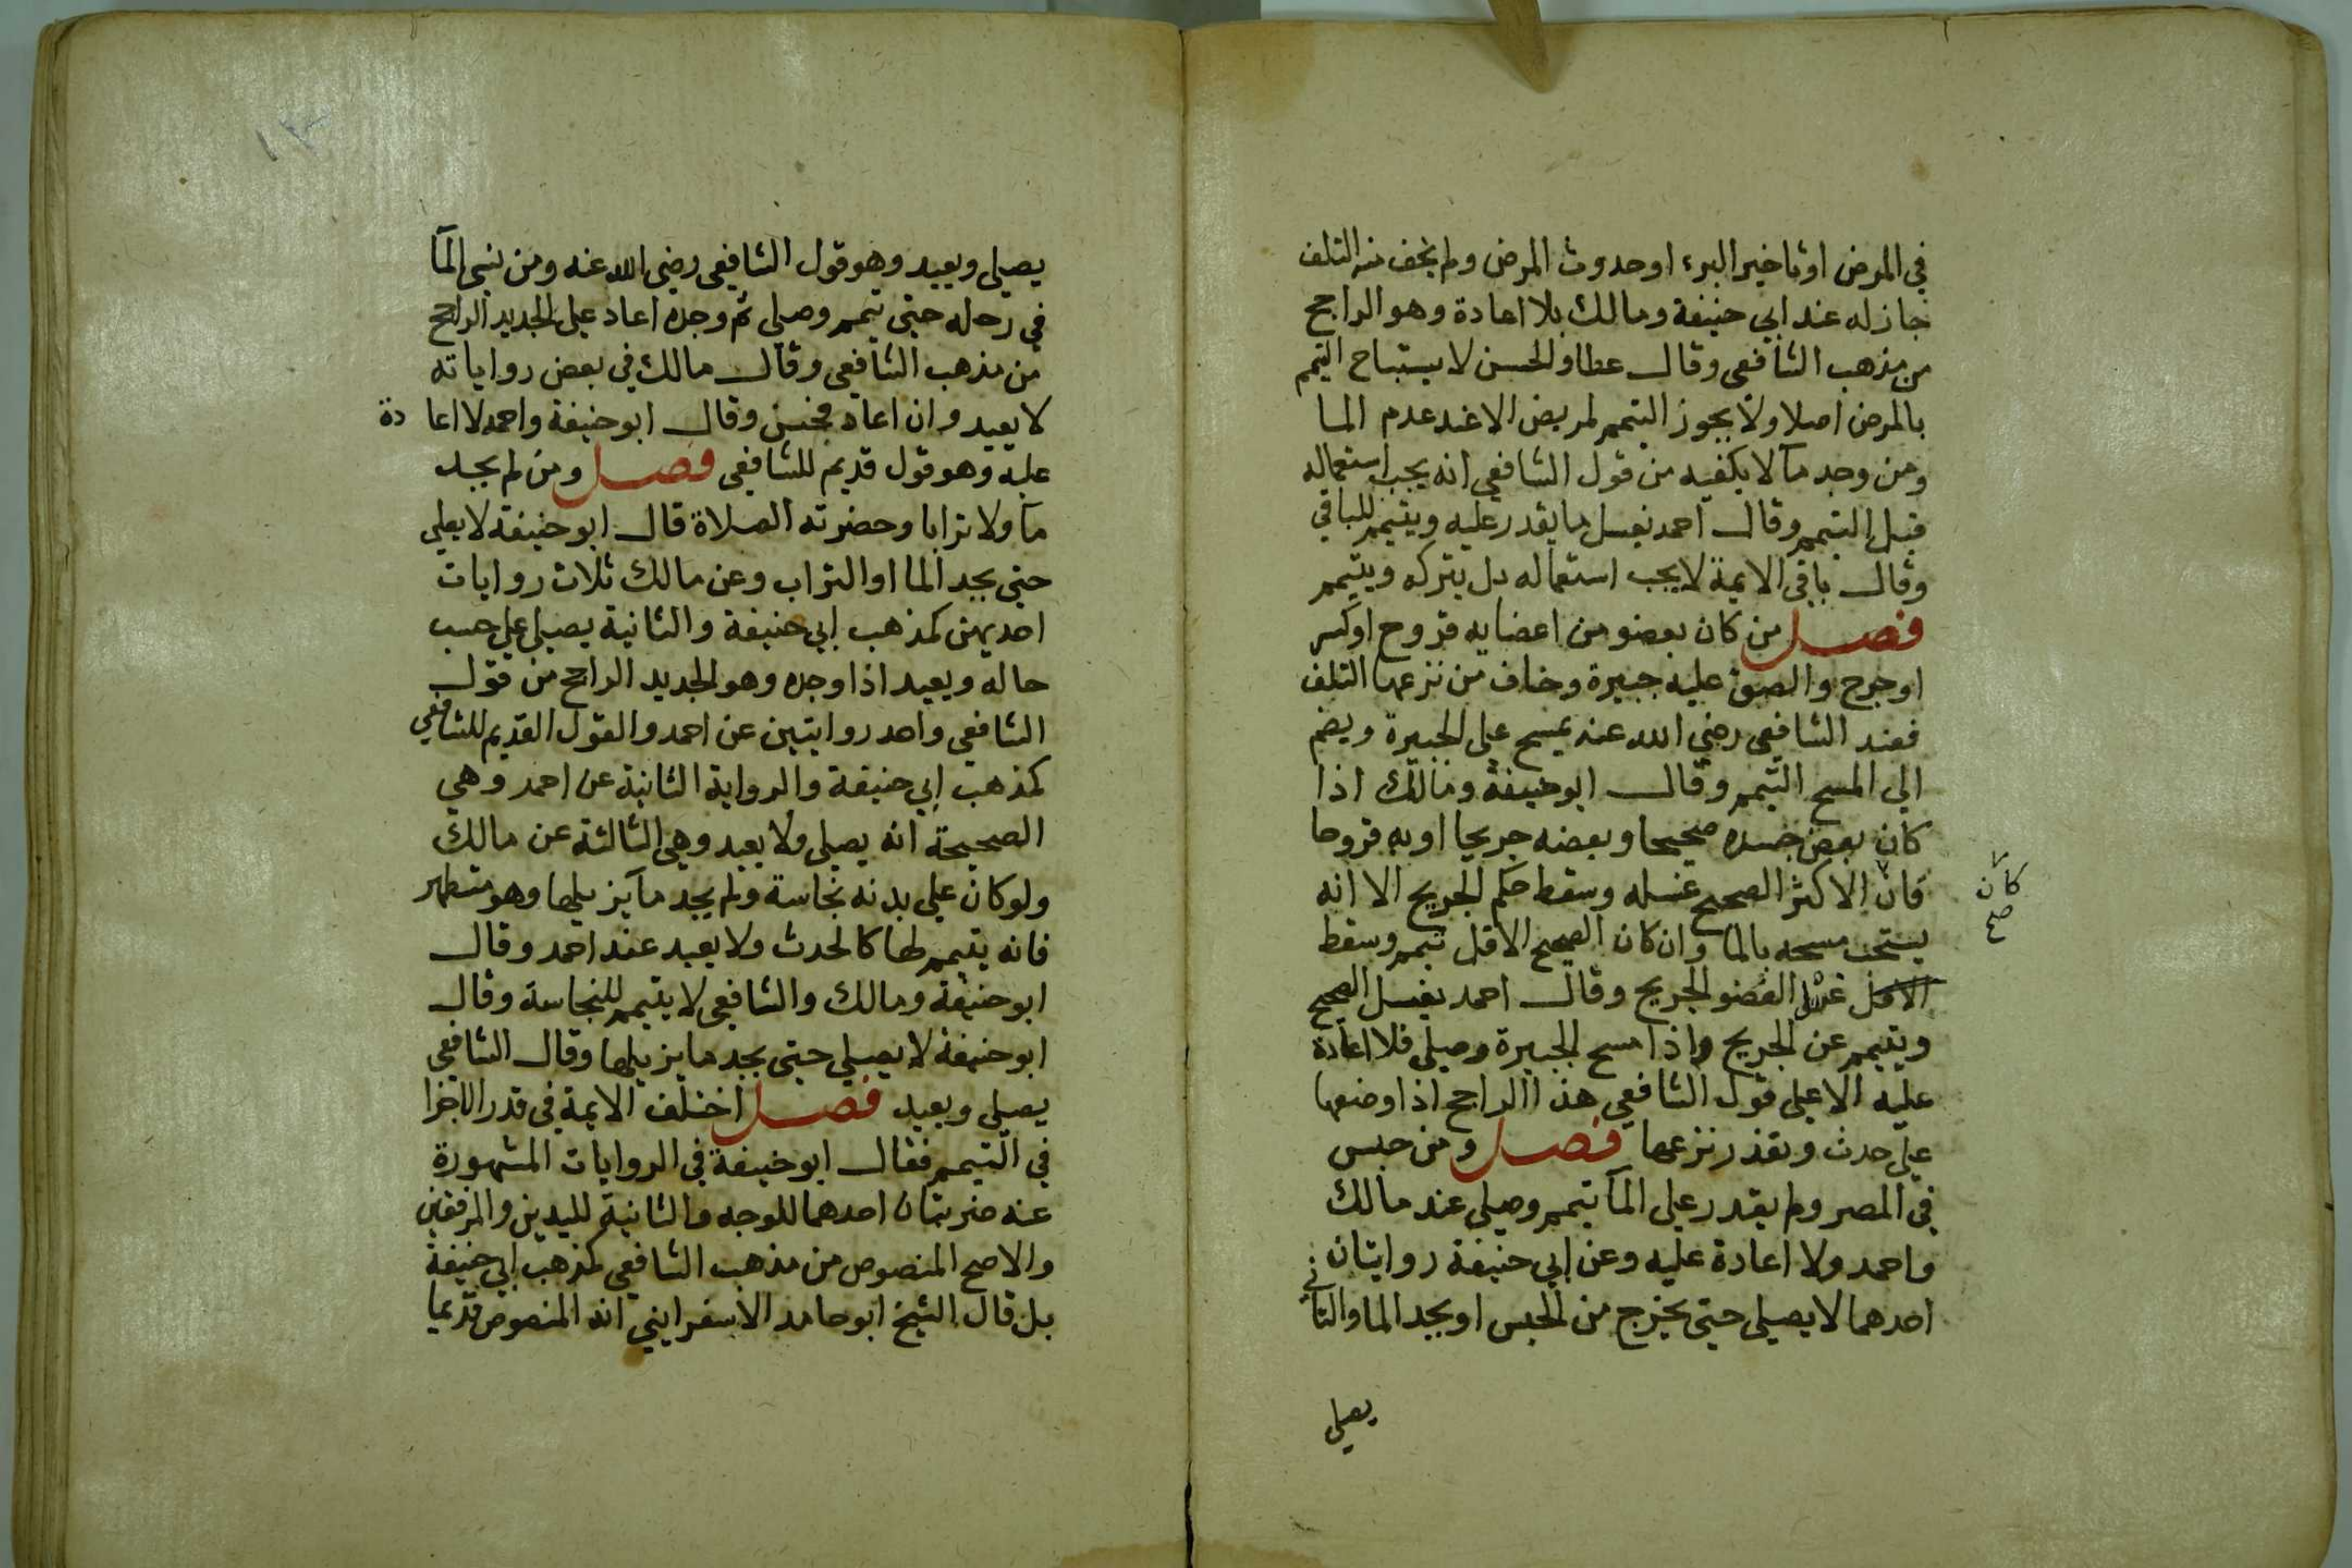 في المرض او تاخير البرء او حدوث المرض ولم يخف منه التلف
جاز له عند ابي حنيفة ومالك بلا اعادة وهو الراجح
من مذهب الشافعي وقال عطا والحسن لا يستباح التيمم
بالمرض اصلا ولا يجوز التيمم لمريض الا عند عدم الما
ومن وجد مآ لا يكفيه من قول الشافعي انه يجب استعماله
قبل التيمم وقال احمد يغسل ما يقدر عليه ويتيمم للباقي
وقال باقي الايمة لا يجب استعماله بل يتركه ويتيمم
فصل من كان بعضو من اعضايه قروح او كسر
او جرح والصق عليه جبيرة وخاف من نزعها التلف
فعند الشافعي رضي الله عنه يمسح على الجبيرة ويضم
الي المسح التيمم وقال ابو حنيفة ومالك اذا
كان بعض جسده صحيحا وبعضه جريحا او به قروحا
فان الاكثر الصحيح غسله وسقط حكم الجريح الا انه
كان
صح
يستحب مسحه بالما وان كان الصحيح الاقل تيمم وسقط
الاقل غسل العضو الجريح وقال احمد يغسل الصحيح
ويتيمم عن الجريح واذا مسح الجبيرة وصلي فلا اعادة
عليه الا علي قول الشافعي هذا الراجح اذا وضعها
علي حدث وتعذر نزعها فصل ومن حبس
في المصر ولم يقدر على المآ تيمم وصلي عند مالك
واحمد ولا اعادة عليه وعن ابي حنيفة روايتان
احدهما لا يصلي حتى يخرج من الحبس او يجد الما والثاني
يصلي
يصلي ويعيد وهو قول الشافعي رضي الله عنه ومن نسي المآ
في رحله حتى تيمم وصلي ثم وجده اعاد على الجديد الراجح
من مذهب الشافعي وقال مالك في بعض رواياته
لا يعيد وان اعاد فحسن وقال ابو حنيفة واحمد لا اعادة
عليه وهو قول قديم للشافعي فصل ومن لم يجد
مآ ولا ترابا وحضرته الصلاة قال ابو حنيفة لا يصلي
حتى يجد الما او التراب وعن مالك ثلاث روايات
احديهن كمذهب ابي حنيفة والثانية يصلي علي حسب
حاله ويعيد اذا وجده وهو الجديد الراجح من قول
الشافعي واحد روايتين عن احمد والقول القديم للشافعي
كمذهب ابي حنيفة والرواية الثانية عن احمد وهي
الصحيحة انه يصلي ولا يعيد وهي الثالثة عن مالك
ولو كان علي بدنه نجاسة ولم يجد مآ يزيلها وهو متطهر
فانه يتيمم لها كالحدث ولا يعيد عند احمد وقال
ابو حنيفة ومالك والشافعي لا يتيمم للنجاسة وقال
ابو حنيفة لا يصلي حتى يجد ما يزيلها وقال الشافعي
يصلي ويعيد فصل اختلف الايمة في قدر الاجزا
في التيمم فقال ابو حنيفة في الروايات المشهورة
عنه ضربتان احدهما للوجه والثانية لليدين والمرفقين
والاصح المنصوص من مذهب الشافعي كمذهب ابي حنيفة
بل قال الشيخ ابو حامد الاسفرايني انه المنصوص قديما